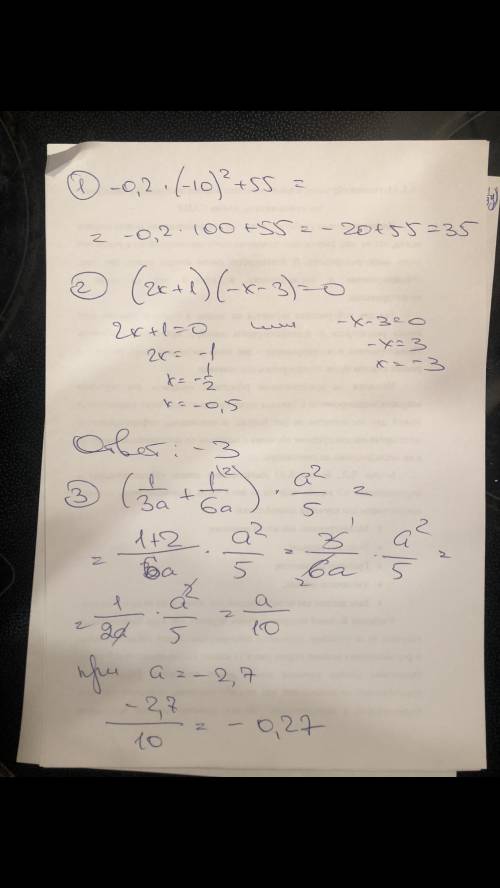 1 -0,2 · (-10)² + 55 =
= -0,2 · 100 + 55 = -20 + 55 = 35
2 (2x+1)(-x-3)=0
2x+1=0 или -x-3=0
2x = -1 -x = 3
x = -1/2 x = -3
x = -0,5
Ответ: -3
3 (1/3a + 1/6a ⁽²⁾) · a²/5 =
= 1+2/6a · a²/5 = 3 ¹/₂ 6a · a²/5 =
= 1/2a · a²/5 = a/10
при a = -2,7
-2,7/10 = -0,27